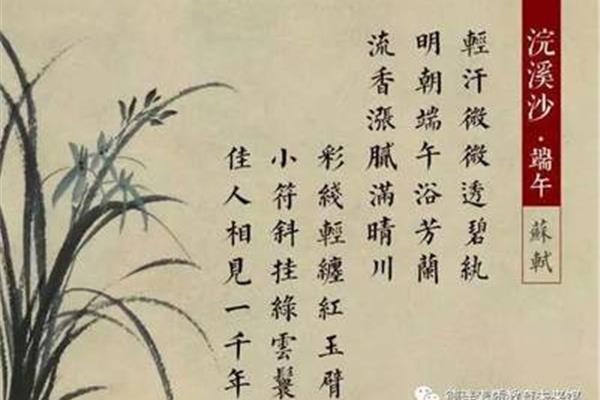 浣溪沙·端午
蘇軾
輕汗微微透碧紈
明朝端午浴芳蘭
流香漲膩滿晴川
彩綫輕纏紅玉臂
小符斜挂綠雲鬟
佳人相見一千年